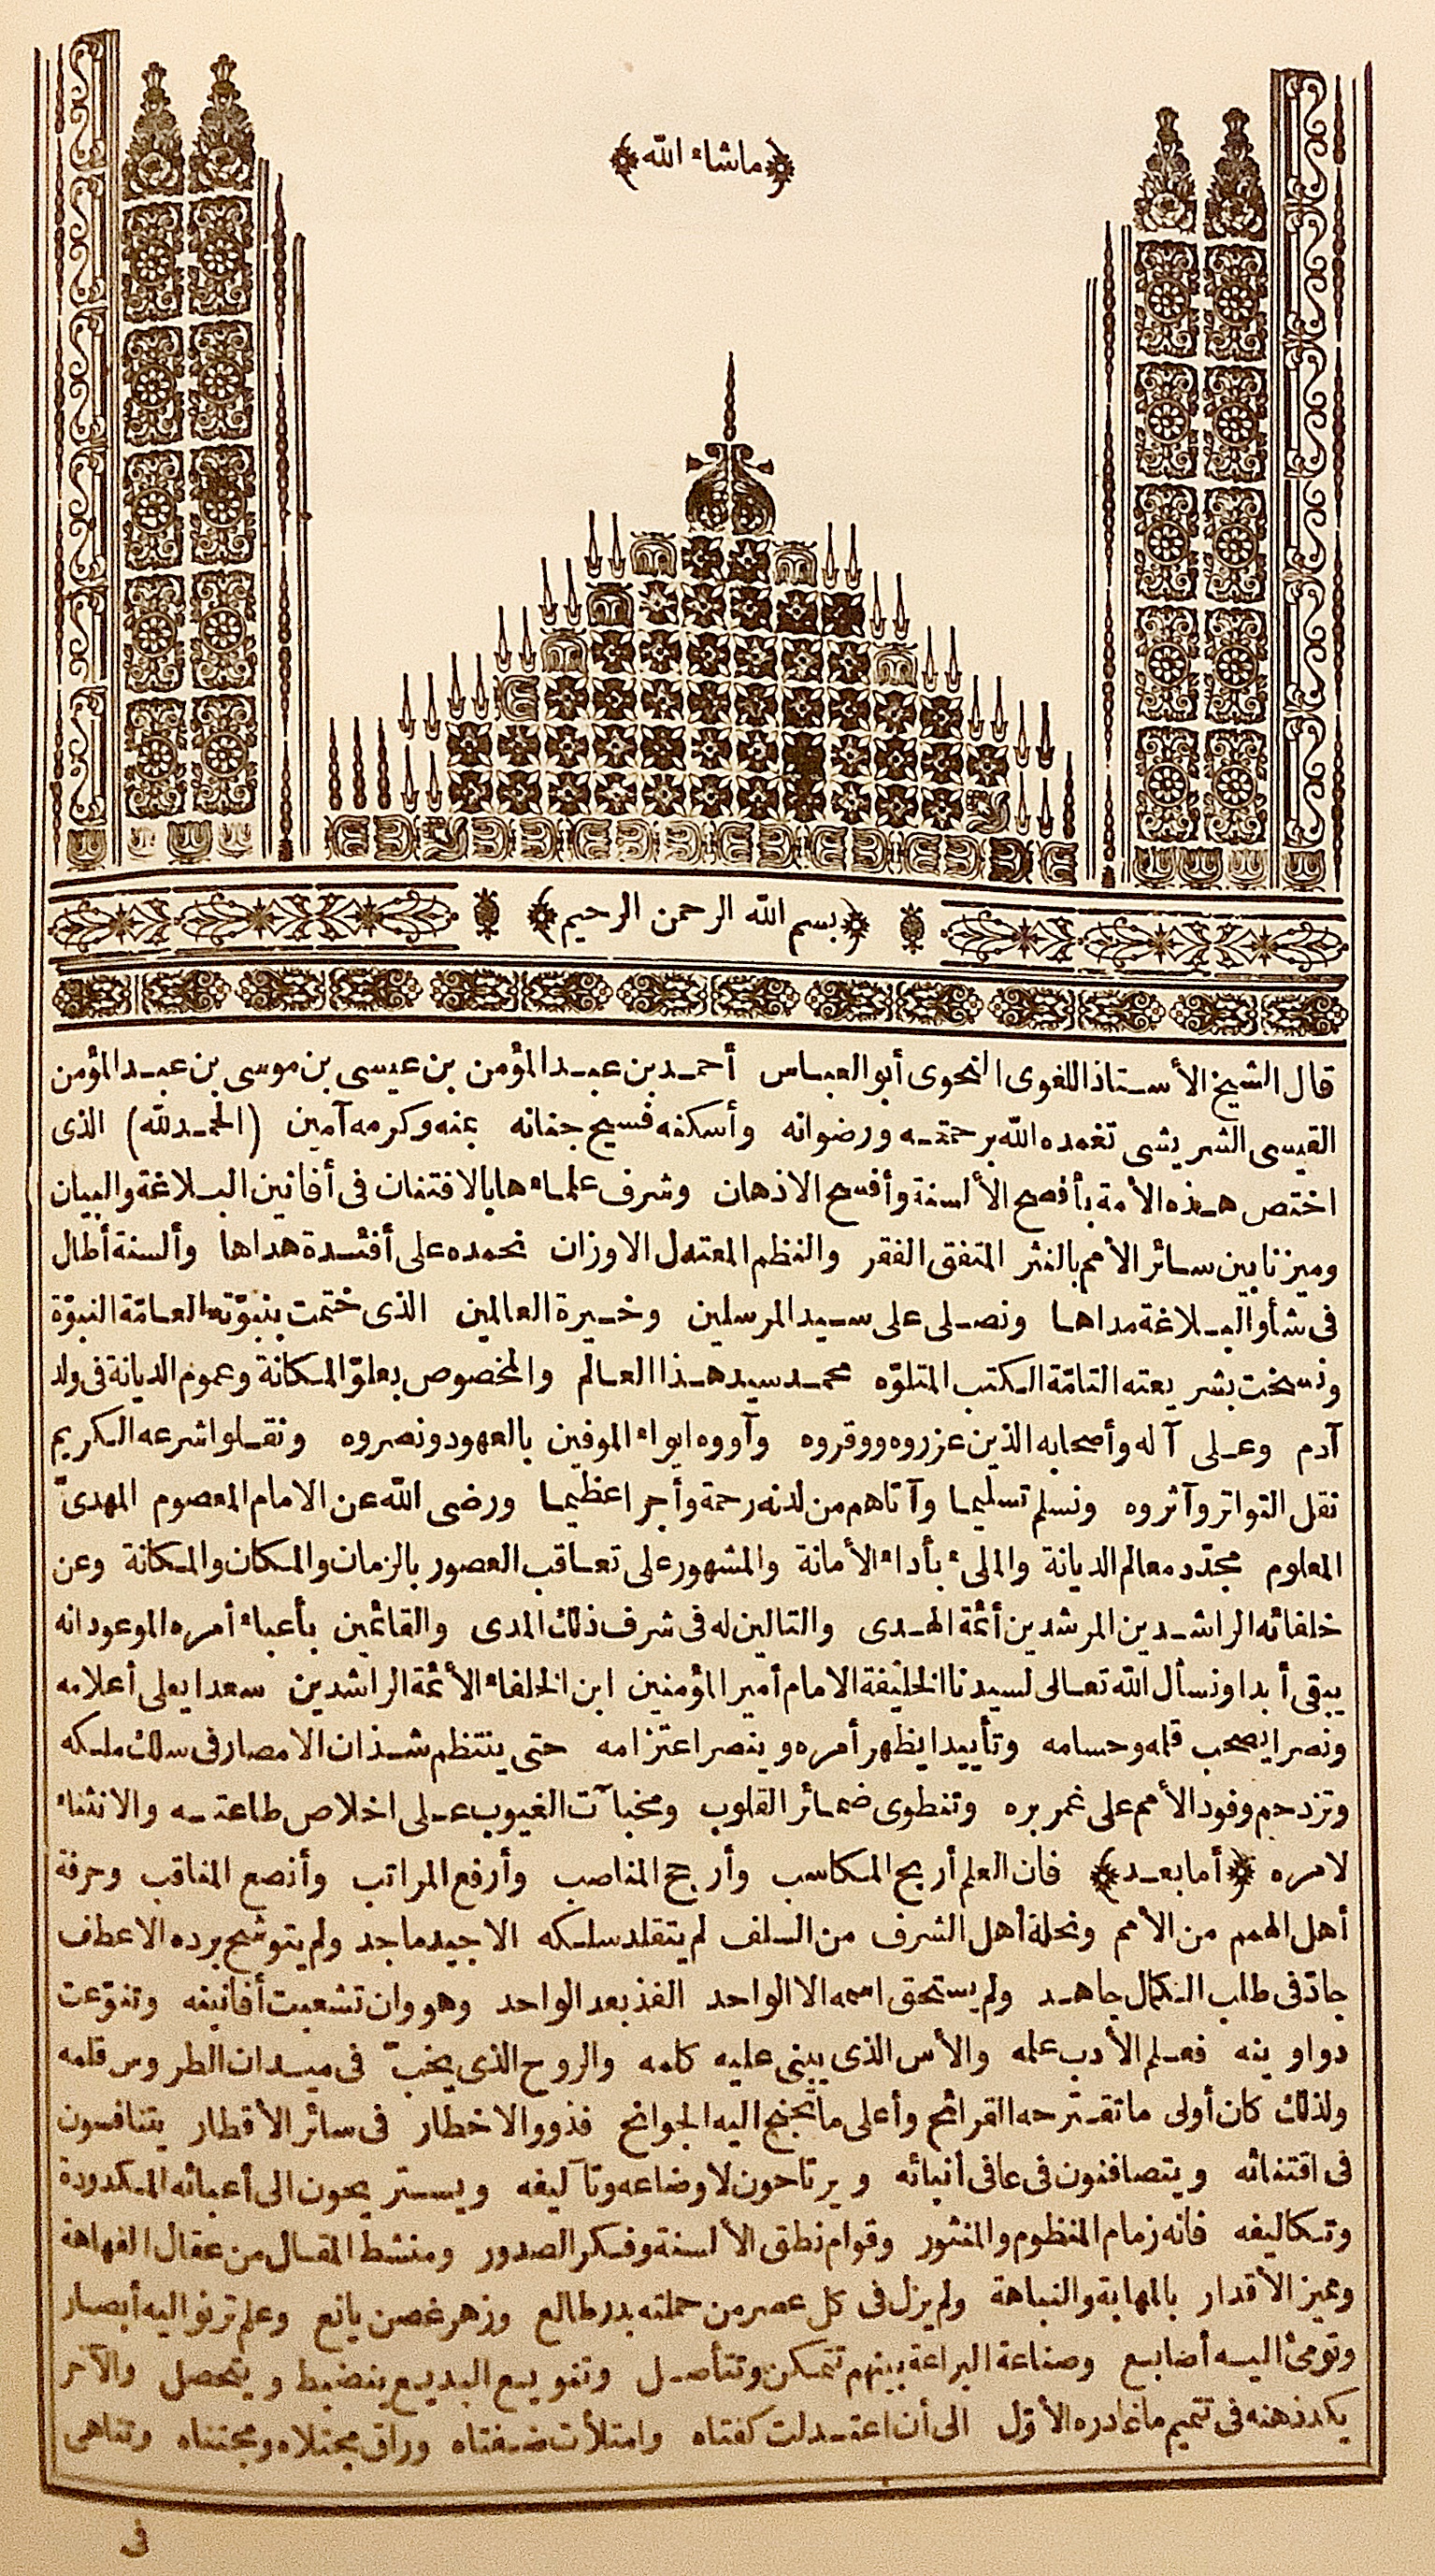 ماشاء الله
بسم الله الرحمن الرحيم
قال الشيخ الأستاذ اللغوى النحوى أبو العباس أحمد بن عبد المؤمن بن عيسى بن موسى بن عبد المؤمن
القيسى الشريشى تغمده الله برحمته ورضوانه وأسكنه فسيح جنانه بمنه وكرمه آمين (الحمد لله) الذى
اختص هذه الأمة بأفصح الألسنة وأفسح الاذهان وشرف علماءها بالافتنان فى أفانين البلاغة والبيان
وميزنا بين سائر الأمم بالنثر المتفق الفقر والنظم المعتدل الاوزان نحمده على أفئدة هداها وألسنة أطال
فى شأو البلاغة مداها ونصلى على سيد المرسلين وخيرة العالمين الذى ختمت بنبوّته العامّة النبوّة
ونسخت بشريعته التامّة الكتب المتلوّه محمد سيد هذا العالم والمخصوص بعلوّ المكانة وعموم الديانة فى ولد
آدم وعلى آله وأصحابه الذين عزروه ووقروه وآووه ايواء الموفين بالعهود ونصروه ونقلوا شرعه الكريم
نقل التواتر وآثروه ونسلم تسليما وآتاهم من لدنه رحمة وأجرا عظيما ورضى الله عن الامام المعصوم المهدىّ
المعلوم مجدّد معالم الديانة والملىء بأداء الأمانة والمشهور على تعاقب العصور بالزمان والمكان والمكانة وعن
خلفائه الراشدين المرشدين أئمة الهدى والتالين له فى شرف ذلك المدى والقائمين بأعباء أمره الموعود انه
يبقى أبدا ونسأل الله تعالى لسيدنا الخليفة الامام أمير المؤمنين ابن الخلفاء الأئمة الراشدين سعدا يعلى أعلامه
ونصرا يصحب قلمه وحسامه وتأييدا يظهر أمره وينصر اعتزامه حتى ينتظم شذان الامصار فى سلك ملكه
وتزدحم وفود الأمم على غمر بره وتنطوى ضمائر القلوب ومخبآت الغيوب على اخلاص طاعته والانثناء
لامره أما بعد فان العلم أربح المكاسب وأرجح المناصب وأرفع المراتب وأنصع المناقب وحرفة
أهل الهمم من الأمم ونحلة أهل الشرف من السلف لم يتقلد سلكه الاجيد ماجد ولم يتوشح برده الاعطف
جادّ فى طلب الكمال جاهد ولم يستحق اسمه الا الواحد الفذ بعد الواحد وهو وان تشعبت أفانينه وتنوّعت
دواوينه فعلم الأدب علمه والأس الذى يبنى عليه كلمه والروح الذى يخبّ فى ميدان الطروس قلمه
ولذلك كان أولى ما تقترحه القرائح وأعلى ما تجنح اليه الجوانح فذوو الاخطار فى سائر الأقطار يتنافسون
فى اقتنائه ويتصافنون فى عافى أنبائه ويرتاحون لاوضاعه وتآليفه ويستريحون الى أعبائه المكدودة
وتكاليفه فانه زمام المنظوم والمنثور وقوام نطق الألسنة وفكر الصدور ومنشط المقال من عقال الفهاهة
ومميز الأقدار بالمهابة والنباهة ولم يزل فى كل عصر من حملته بدر طالع وزهر غصن يانع وعلم ترنو اليه أبصار
وتومئ اليه أصابع وصناعة البراعة بينهم تتمكن وتتأصل وتنويع البديع ينضبط ويتحصل والآخر
يكد ذهنه فى تتميم ما غادره الأوّل الى أن اعتدلت كفتاه وامتلأت ضفتاه وراق مجتلاه ومجتناه وتناهى
فى